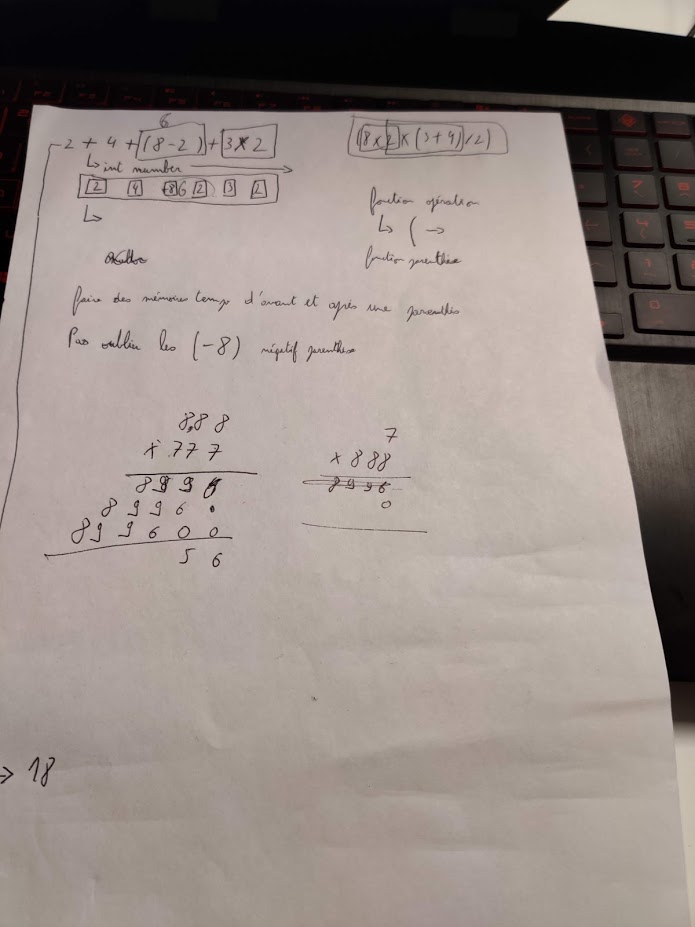 6
2 + 4 + (8 - 2) + 3 x 2
(8 x 2) x (3 + 4) / 2)
↳ int number
2 4 8 6 2 3 2
↳
fonction opération
↳ ( →
fonction parenthèse
faire des mémoires temp d'avant et après une parenthès
Pas oublier les (-8) négatif parenthèse
8,88
x 777
8996
8996.
899600
56
7
x 888
8996
0
→ 18